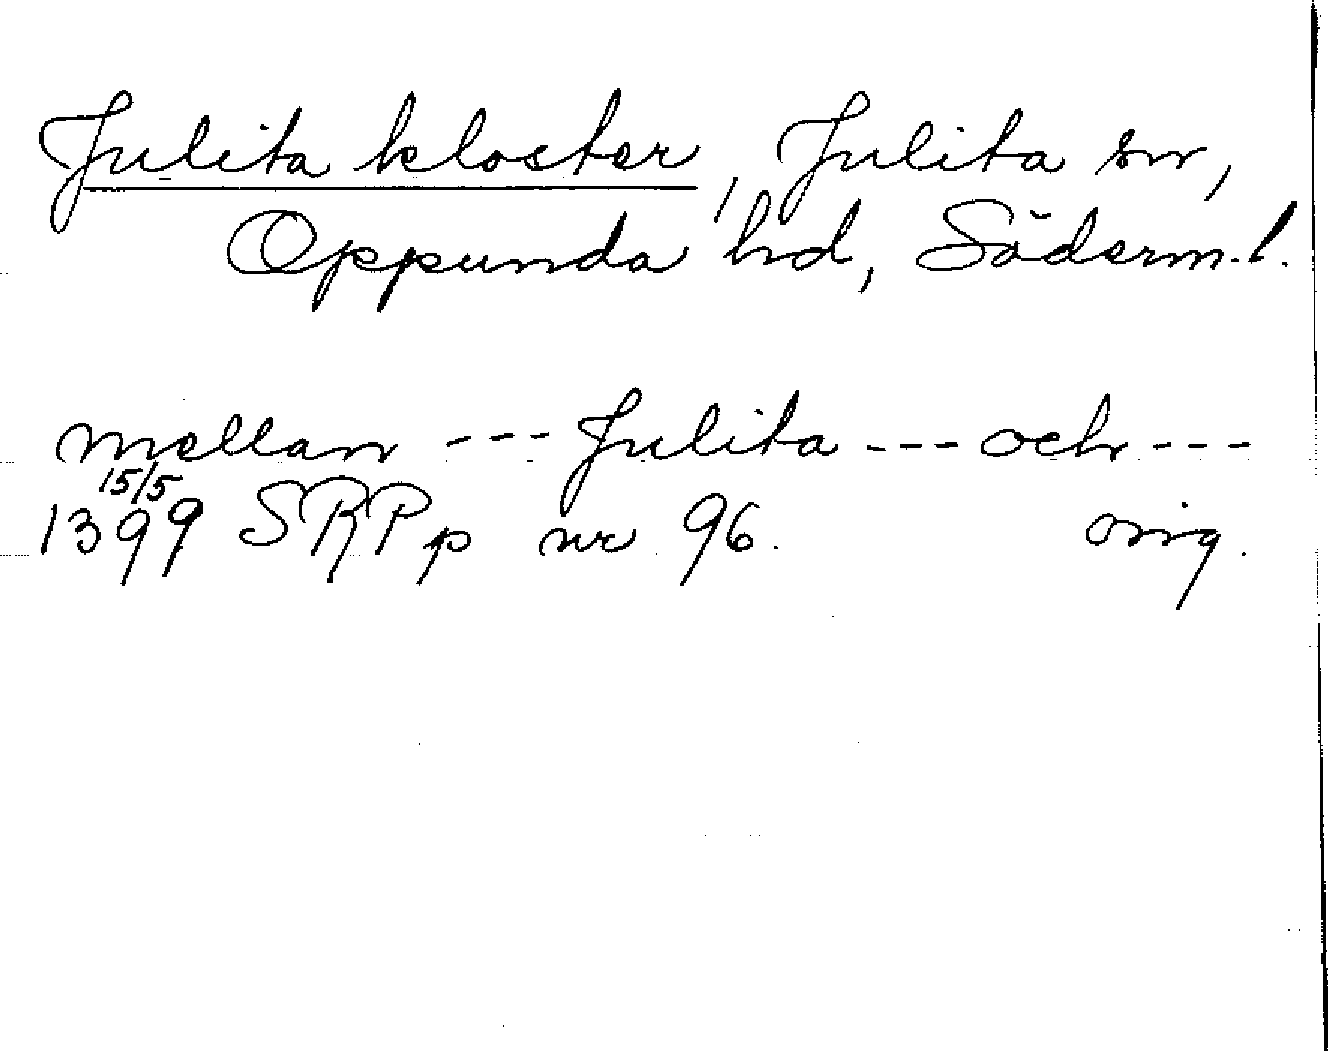 Julita kloster, Julita sn,
Oppunda hd, Söderm.l.
mellan --- Julita --- och ---
15/5
1399 SRPp nr 96. orig.